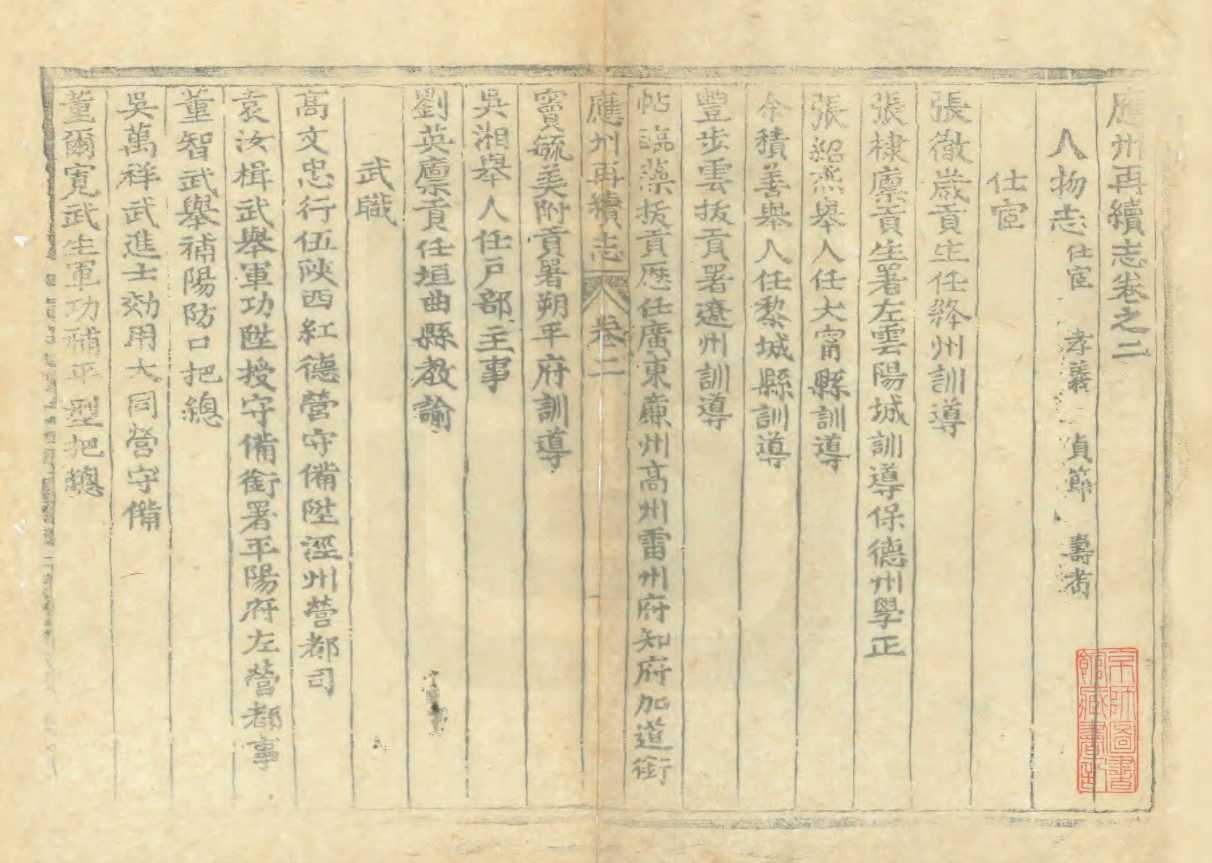 應州再續志卷之二
人物志 仕宦 孝義 貞節 壽耉
仕宦
張徹歲貢生任絳州訓導
張棣廩貢生署左雲陽城訓導保德州學正
張紹燕舉人任大甯縣訓導
余積善舉人任黎城縣訓導
豐步雲拔貢署遼州訓導
帖臨藻拔貢歷任廣東廉州高州雷州府知府加道銜
應州再續志 卷二
竇毓美附貢署朔平府訓導
吳湘舉人任戶部主事
劉英廪貢任垣曲縣教諭
武職
高文忠行伍陝西紅德營守備陞涇州營都司
袁汝楫武舉軍功陞授守備銜署平陽府左營都事
董智武舉補陽防口把總
吳萬祥武進士効用大同營守備
董爾寬武生軍功補平型把總
京師圖書
館藏書印